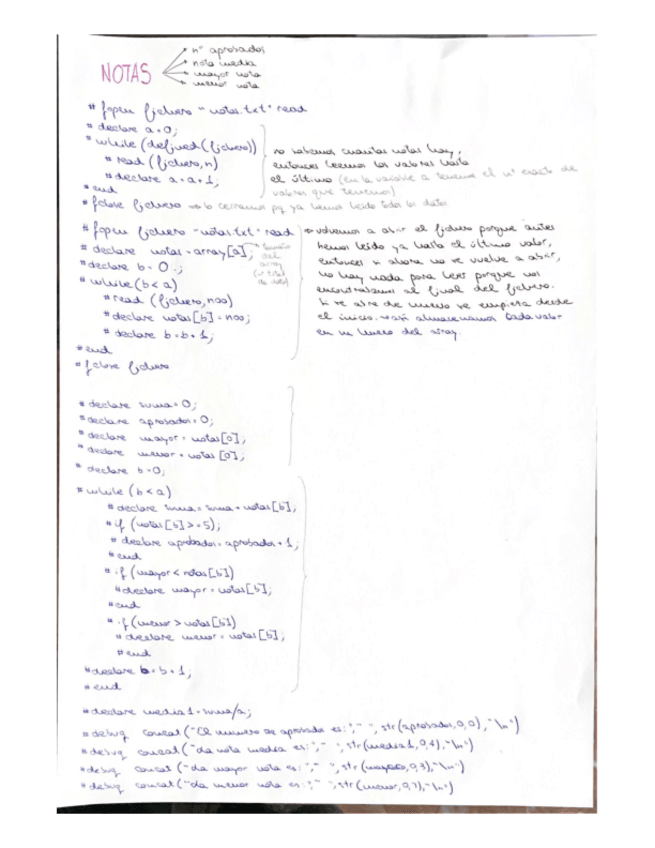 NOTAS
nº aprobados
nota media
mayor nota
menor nota
# fopen fichero "notas.txt" read
# declare a=0;
# while (defined(fichero))
# read (fichero,n)
# declare a=a+1;
# end
# fclose fichero => lo cerramos pq ya hemos leido todos los datos
no sabemos cuantas notas hay,
entonces leemos los valores hasta
el último (en la variable a tenemos el nº exacto de
valores que tenemos)
# fopen fichero "notas.txt" read
# declare notas=array[a];
tamaño
del
array
(nº total
de datos)
# declare b=0;
# while(b<a)
# read (fichero,noo)
# declare notas[b]=noo;
# declare b=b+1;
# end
# fclose fichero
=> volvemos a abrir el fichero porque antes
hemos leído ya hasta el último valor,
entonces si ahora no se vuelve a abrir,
no hay nada para leer porque nos
encontrábamos al final del fichero.
Si se abre de nuevo se empieza desde
el inicio. así almacenamos cada valor
en un hueco del array.
# declare suma=0;
# declare aprobados=0;
# declare mayor=notas[0];
# declare menor=notas[0];
# declare b=0;
# while (b<a)
# declare suma=suma+notas[b];
# if (notas[b]>=5);
# declare aprobados=aprobados+1;
# end
# if (mayor<notas[b])
# declare mayor=notas[b];
# end
# if (menor>notas[b])
# declare menor=notas[b];
# end
# declare b=b+1;
# end
# declare media1=suma/a;
# debug concat("El número de aprobados es:"," ",str(aprobados,0,0),"\n")
# debug concat("La nota media es:"," ",str(media1,0,4),"\n")
# debug concat("La mayor nota es:"," ",str(mayor,0,3),"\n")
# debug concat("La menor nota es:"," ",str(menor,0,3),"\n")